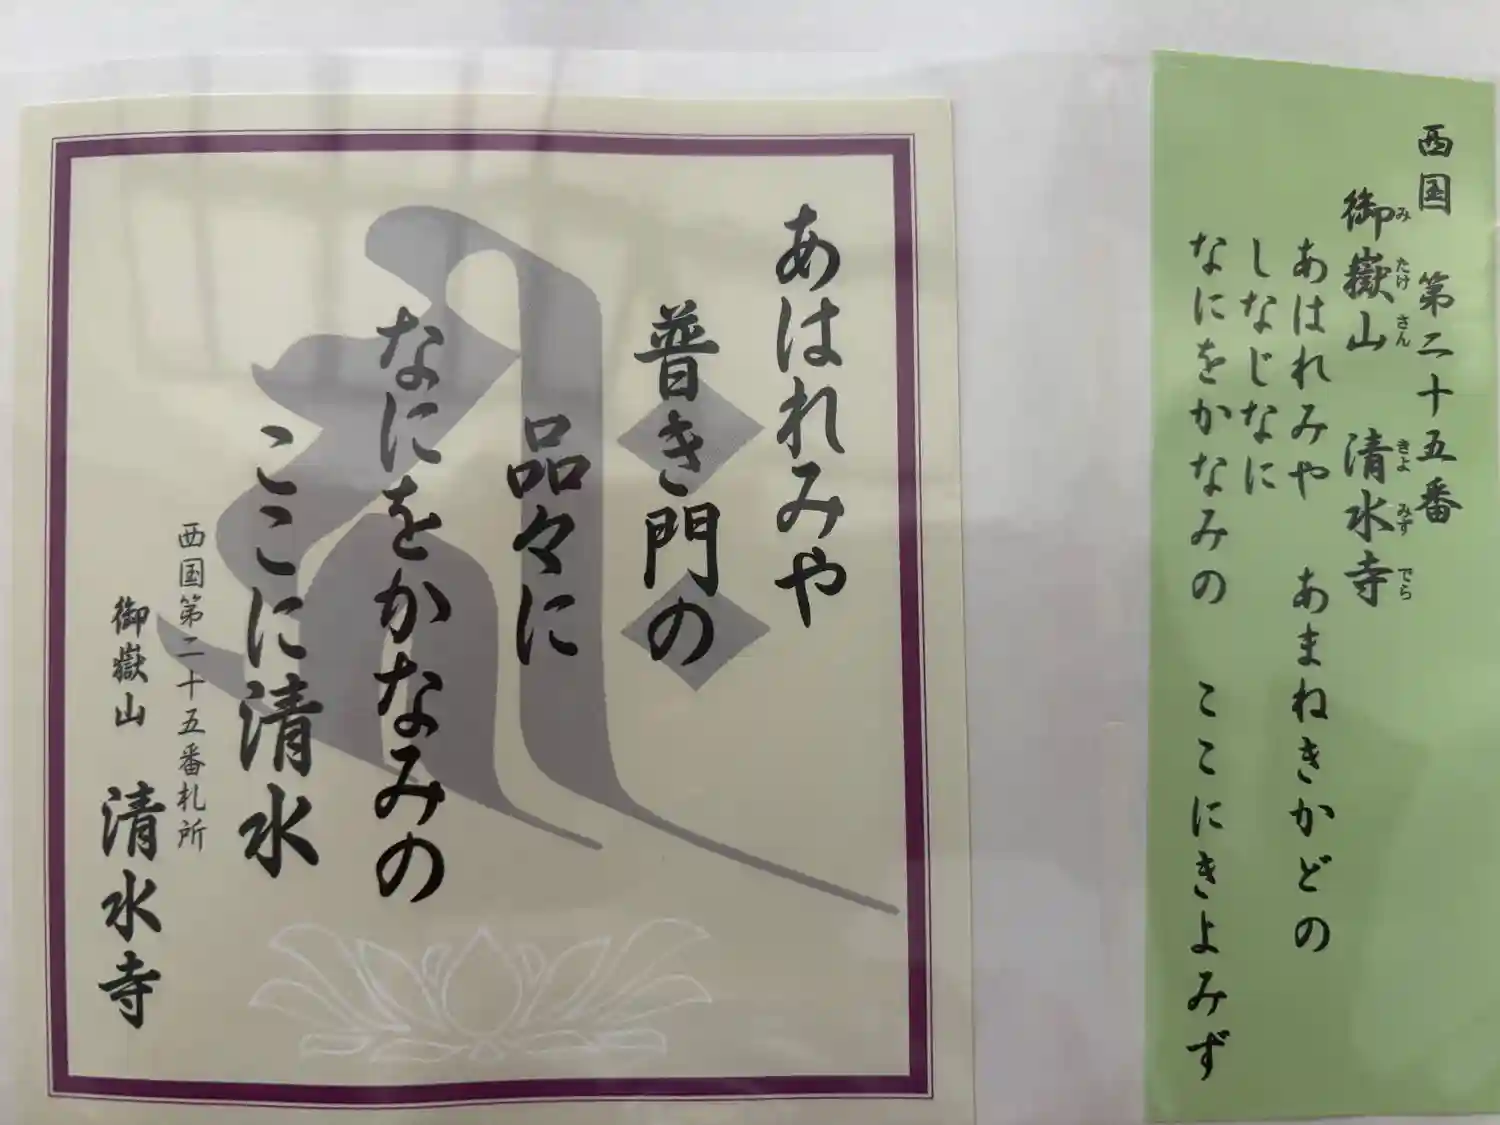 あはれみや
普き門の
品々に
なにをかなみの
ここに清水
西国第二十五番札所
御嶽山 清水寺
西国 第二十五番
御嶽山 清水寺
み たけ さん きよ みず でら
あはれみや あまねきかどの
しなじなに
なにをかなみの ここにきよみず